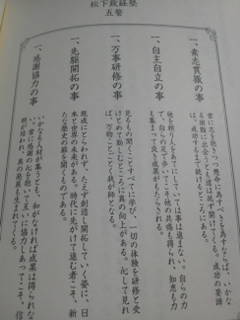 松下政経塾
五誓
一、素志貫徹の事
常に志を抱きつつ懸命に為すべきを為すならば、いかな
る困難に出会うとも道は必ず開けてくる。成功の要諦
は、成功するまで続けるところにある。
一、自主自立の事
他を頼り人をあてにしていては事は進まない。自らの力
で、自らの足で歩いてこそ他の共鳴も得られ、知恵も力
も集まって良き成果がもたらされる。
一、万事研修の事
見るもの聞くことすべてに学び、一切の体験を研修と受
けとめて勤しむところに真の向上がある。心して見れ
ば万物ことごとく我が師となる。
一、先駆開拓の事
既成にとらわれず、たえず創造し開拓していく姿に、日
本と世界の未来がある。時代に先がけて進む者こそ、新
たな歴史の扉を開くものである。
一、感謝協力の事
いかなる人材が集うとも、和がなければ成果は得られな
い。常に感謝の心を抱いて互いに協力しあってこそ、信
頼が培われ、真の発展も生まれてくる。